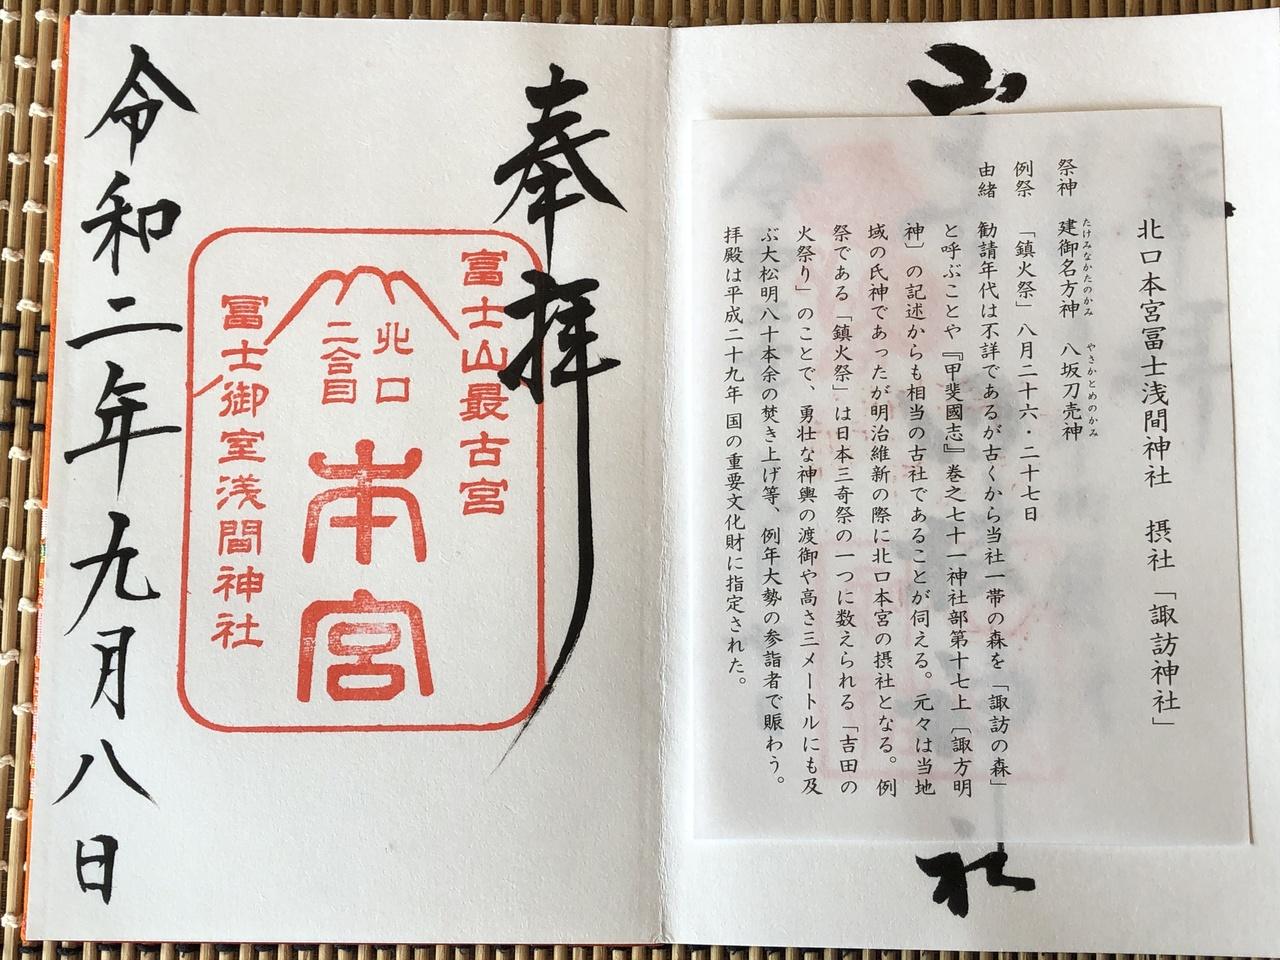 北口本宮冨士浅間神社　摂社「諏訪神社」
祭神　建御名方神　八坂刀売神
たけみなかたのかみ　やさかとめのかみ
例祭　「鎮火祭」八月二十六・二十七日
由緒　勧請年代は不詳であるが古くから当社一帯の森を「諏訪の森」
と呼ぶことや『甲斐國志』巻之七十一神社部第十七上〔諏方明
神〕の記述からも相当の古社であることが伺える。元々は当地
域の氏神であったが明治維新の際に北口本宮の摂社となる。例
祭である「鎮火祭」は日本三奇祭の一つに数えられる「吉田の
火祭り」のことで、勇壮な神輿の渡御や高さ三メートルにも及
ぶ大松明八十本余の焚き上げ等、例年大勢の参詣者で賑わう。
拝殿は平成二十九年 国の重要文化財に指定された。
社
奉拝
富士山最古宮
北口
二合目
本宮
冨士御室浅間神社
令和二年九月八日